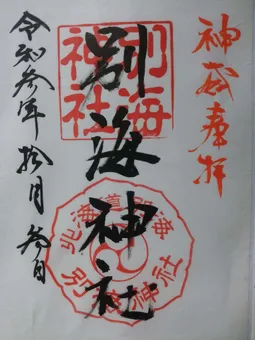 神威奉拝
別海神社
別海神社
北海道別海
別海神社
令和参年拾月参日